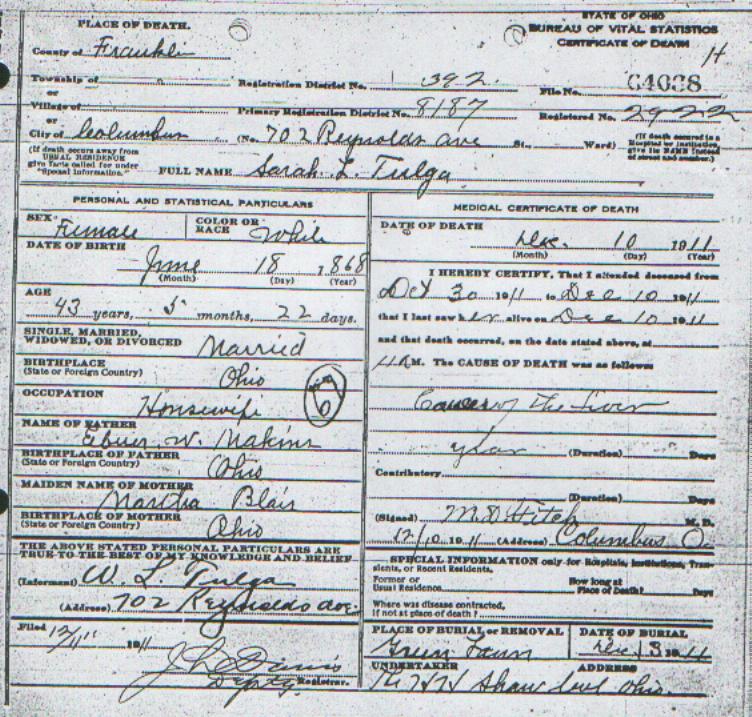 STATE OF OHIO
BUREAU OF VITAL STATISTICS
CERTIFICATE OF DEATH
PLACE OF DEATH.
County of Franklin
Township of
or
Village of
or
City of Columbus (No. 702 Reynolds ave St., Ward)
Registration District No. 392
File No. 64038
Primary Registration District No. 8187
Registered No. 2922
(If death occurs away from USUAL RESIDENCE give facts called for under "Special Information.")
(If death occurred in a Hospital or Institution, give its NAME instead of street and number.)
FULL NAME Sarah L. Tulga
PERSONAL AND STATISTICAL PARTICULARS
SEX Female
COLOR OR RACE White
DATE OF BIRTH
June 18 1868
(Month) (Day) (Year)
AGE
43 years, 5 months, 22 days.
SINGLE, MARRIED,
WIDOWED, OR DIVORCED Married
BIRTHPLACE
(State or Foreign Country) Ohio
OCCUPATION
Housewife
NAME OF FATHER
W. Makins
BIRTHPLACE OF FATHER
(State or Foreign Country) Ohio
MAIDEN NAME OF MOTHER
Martha Blair
BIRTHPLACE OF MOTHER
(State or Foreign Country) Ohio
THE ABOVE STATED PERSONAL PARTICULARS ARE
TRUE TO THE BEST OF MY KNOWLEDGE AND BELIEF
(Informant) W. L. Tulga
(Address) 702 Reynolds ave.
Filed 12/11 1911
J L Davis
Depty Registrar.
MEDICAL CERTIFICATE OF DEATH
DATE OF DEATH
Dec. 10 1911
(Month) (Day) (Year)
I HEREBY CERTIFY, That I attended deceased from
Oct 30 1911 to Dec 10 1911
that I last saw her alive on Dec 10 1911
and that death occurred, on the date stated above, at
M. The CAUSE OF DEATH was as follows:
Cancer of the Liver
year (Duration) Days
Contributory
(Duration) Days
(Signed) M D Fitch M. D.
12/10 1911 (Address) Columbus O.
SPECIAL INFORMATION only for Hospitals, Institutions, Transients, or Recent Residents.
Former or
Usual Residence
How long at
Place of Death? Days
Where was disease contracted,
if not at place of death?
PLACE OF BURIAL or REMOVAL
Green Lawn
DATE OF BURIAL
Dec 13 1911
UNDERTAKER
ADDRESS
Shaw Ohio.